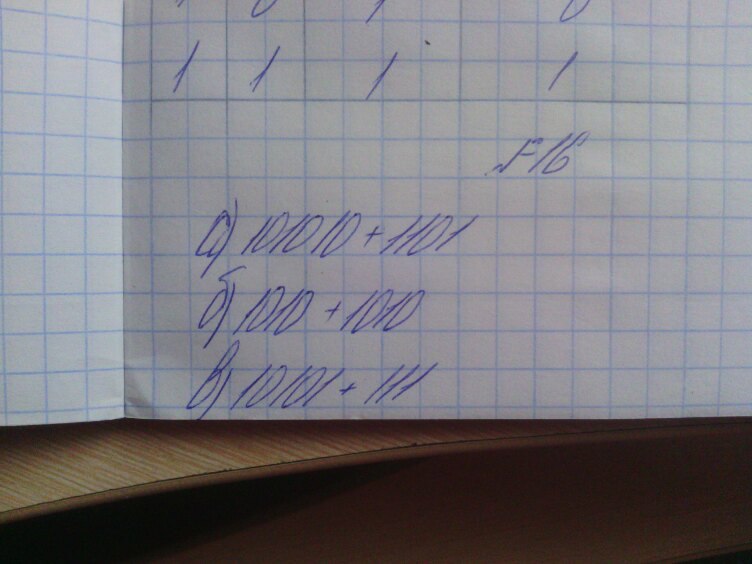 1 0 1 0
1 1 1 1
№16
а) 101010 + 1101
б) 1010 + 1010
в) 10101 + 111